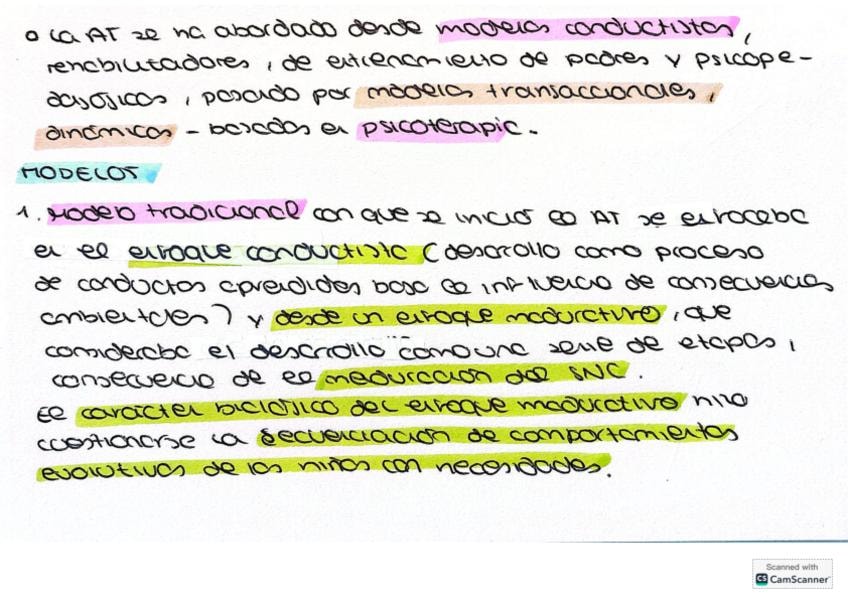 o La AT se ha abordado desde modelos conductistas,
rehabilitadores, de entrenamiento de padres y psicope-
dagógicos, pasando por modelos transaccionales,
dinámicos - basados en psicoterapia.
MODELOS
1. Modelo tradicional con que se inició la AT se enfocaba
en el enfoque conductista (desarrollo como proceso
de conductas aprendidas bajo la influencia de consecuencias
ambientales) y desde un enfoque madurativo, que
consideraba el desarrollo como una serie de etapas,
consecuencia de la maduración del SNC.
El carácter biológico del enfoque madurativo hizo
cuestionarse la secuenciación de comportamientos
evolutivos de los niños con necesidades.
Scanned with
CS CamScanner